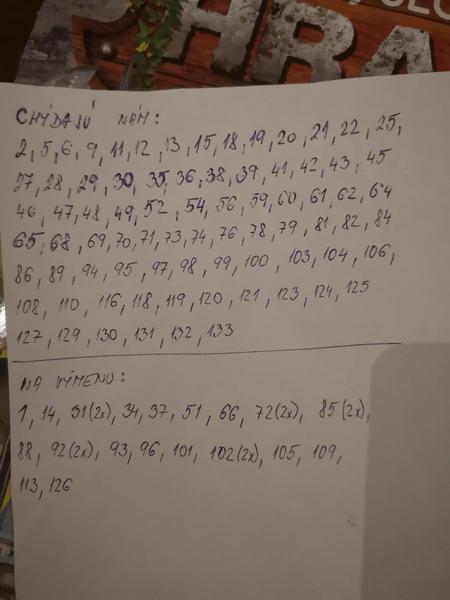 HRA
CHÝBAJÚ NÁM:
2, 5, 6, 9, 11, 12, 13, 15, 18, 19, 20, 21, 22, 25,
27, 28, 29, 30, 35, 36, 38, 39, 41, 42, 43, 45
46, 47, 48, 49, 52, 54, 56, 59, 60, 61, 62, 64
65, 68, 69, 70, 71, 73, 74, 76, 78, 79, 81, 82, 84
86, 89, 94, 95, 97, 98, 99, 100, 103, 104, 106,
108, 110, 116, 118, 119, 120, 121, 123, 124, 125
127, 129, 130, 131, 132, 133
NA VÝMENU:
1, 14, 31(2x), 34, 37, 51, 66, 72(2x), 85(2x),
88, 92(2x), 93, 96, 101, 102(2x), 105, 109,
113, 126